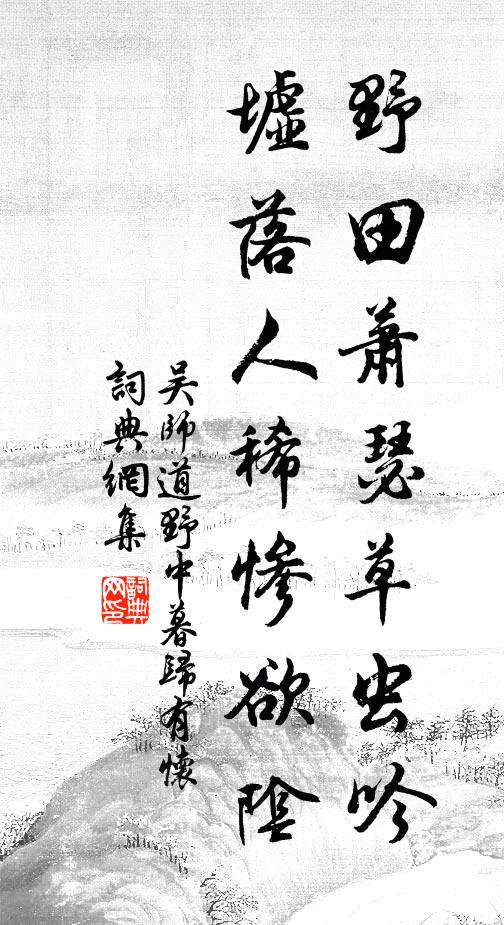 野田蕭瑟草虫吟
墟落人稀慘欲陰
吴師道野中暮歸有懷
詞典網集
詞典
网印